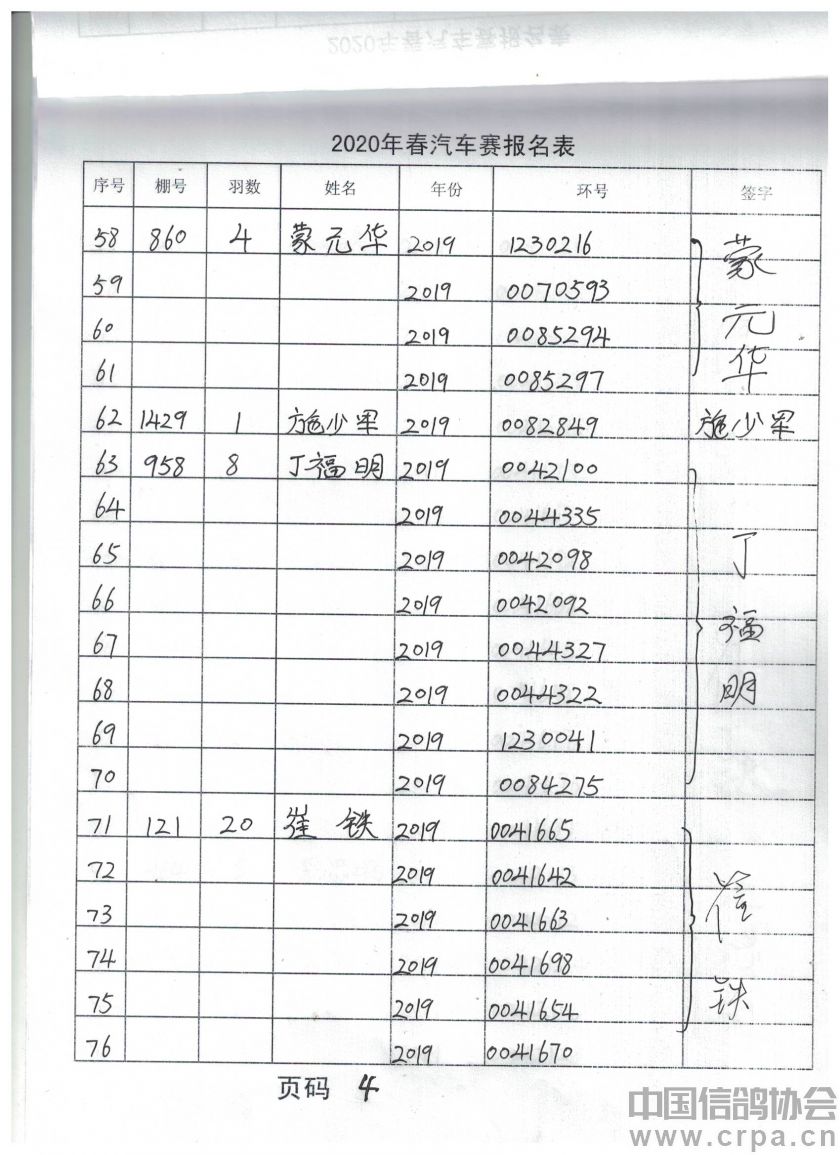 2020年春汽车赛报名表
序号 棚号 羽数 姓名 年份 环号 签字
58 860 4 蒙元华 2019 1230216 蒙元华
59 2019 0070593
60 2019 0085294
61 2019 0085297
62 1429 1 施少军 2019 0082849 施少军
63 958 8 丁福明 2019 0042100 丁福明
64 2019 0044335
65 2019 0042098
66 2019 0042092
67 2019 0044327
68 2019 0044322
69 2019 1230041
70 2019 0084275
71 121 20 崔铁 2019 0041665 崔铁
72 2019 0041642
73 2019 0041663
74 2019 0041698
75 2019 0041654
76 2019 0041670
页码 4
中国信鸽协会
www.crpa.cn